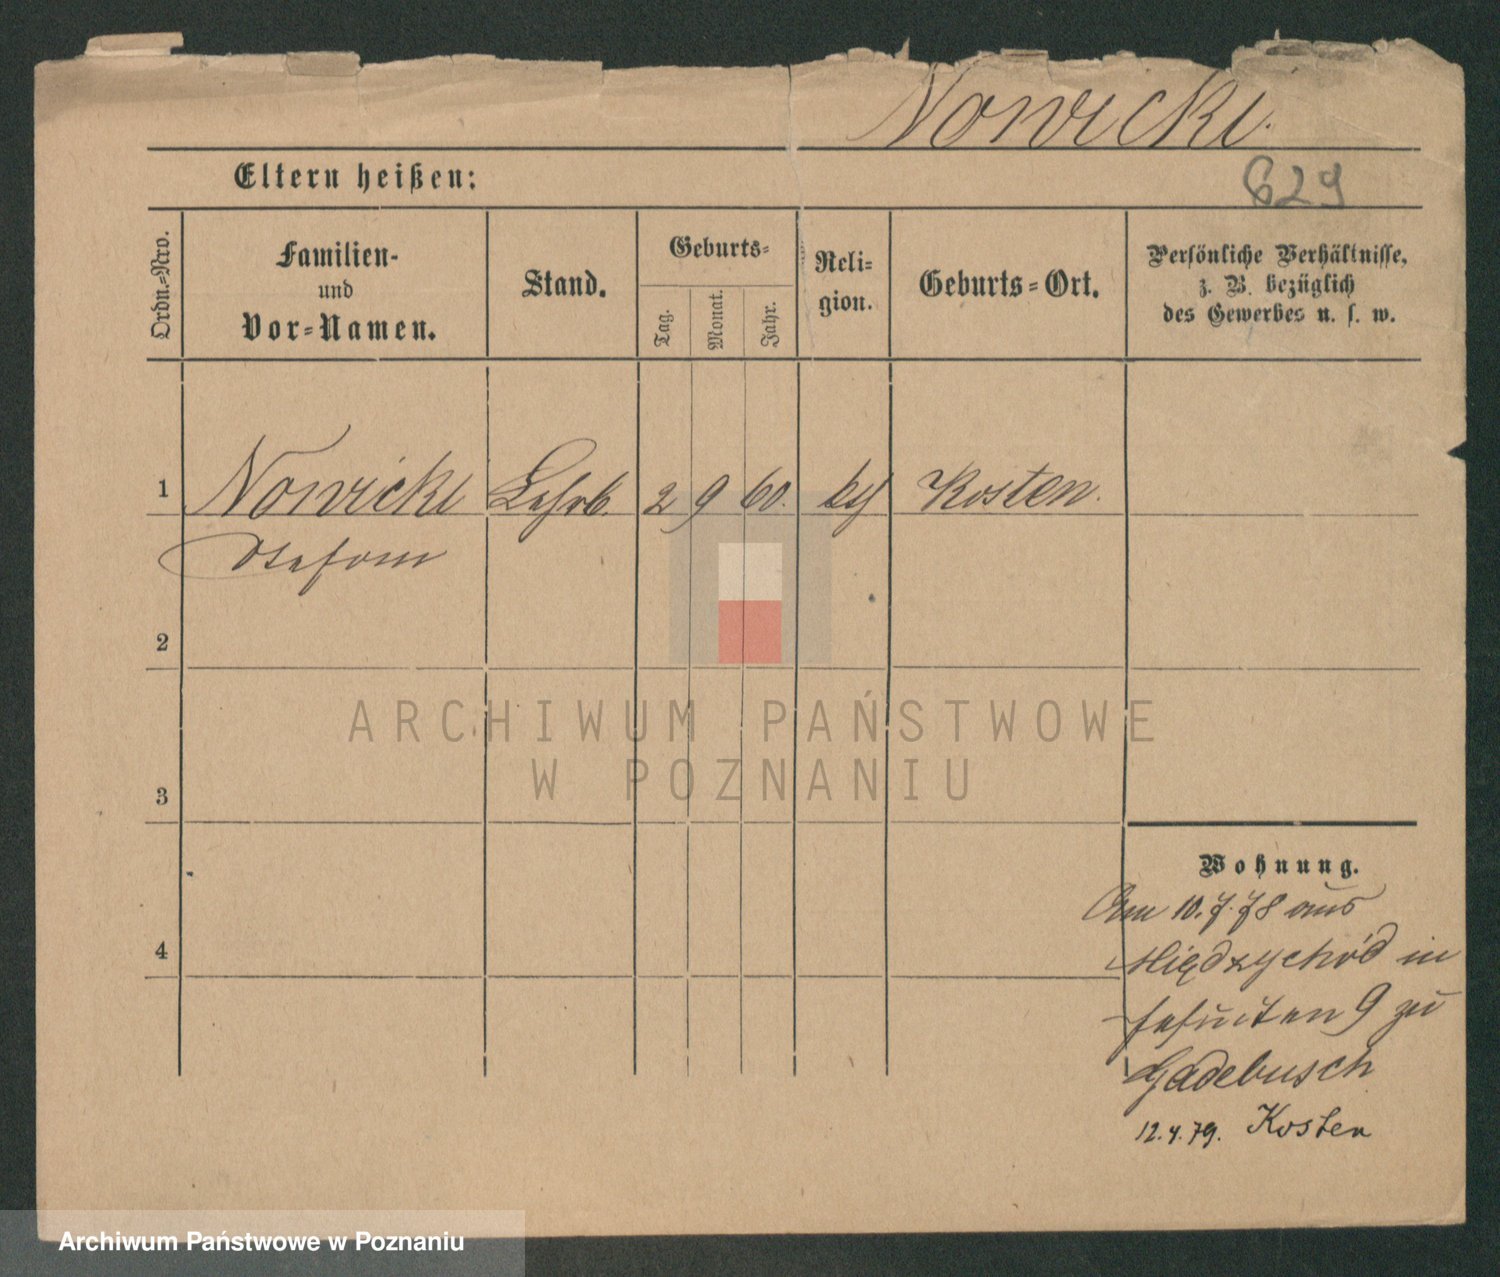 Nowicki.
Eltern heißen:
629
Ordn.=Nro.
Familien-
und
Vor=Namen.
Stand.
Geburts=
Tag.
Monat.
Jahr.
Reli=
gion.
Geburts=Ort.
Persönliche Verhältnisse,
z. B. bezüglich
des Gewerbes u. s. w.
1 Nowicki Lehrb. 2 9 60. Kosten.
Stefan
2
3
4
ARCHIWUM PAŃSTWOWE
W POZNANIU
Wohnung.
Am 10.7.78 aus
Międzychód in
Jesuiten 9 zu
Gadebusch
12.4.79. Kosten
Archiwum Państwowe w Poznaniu